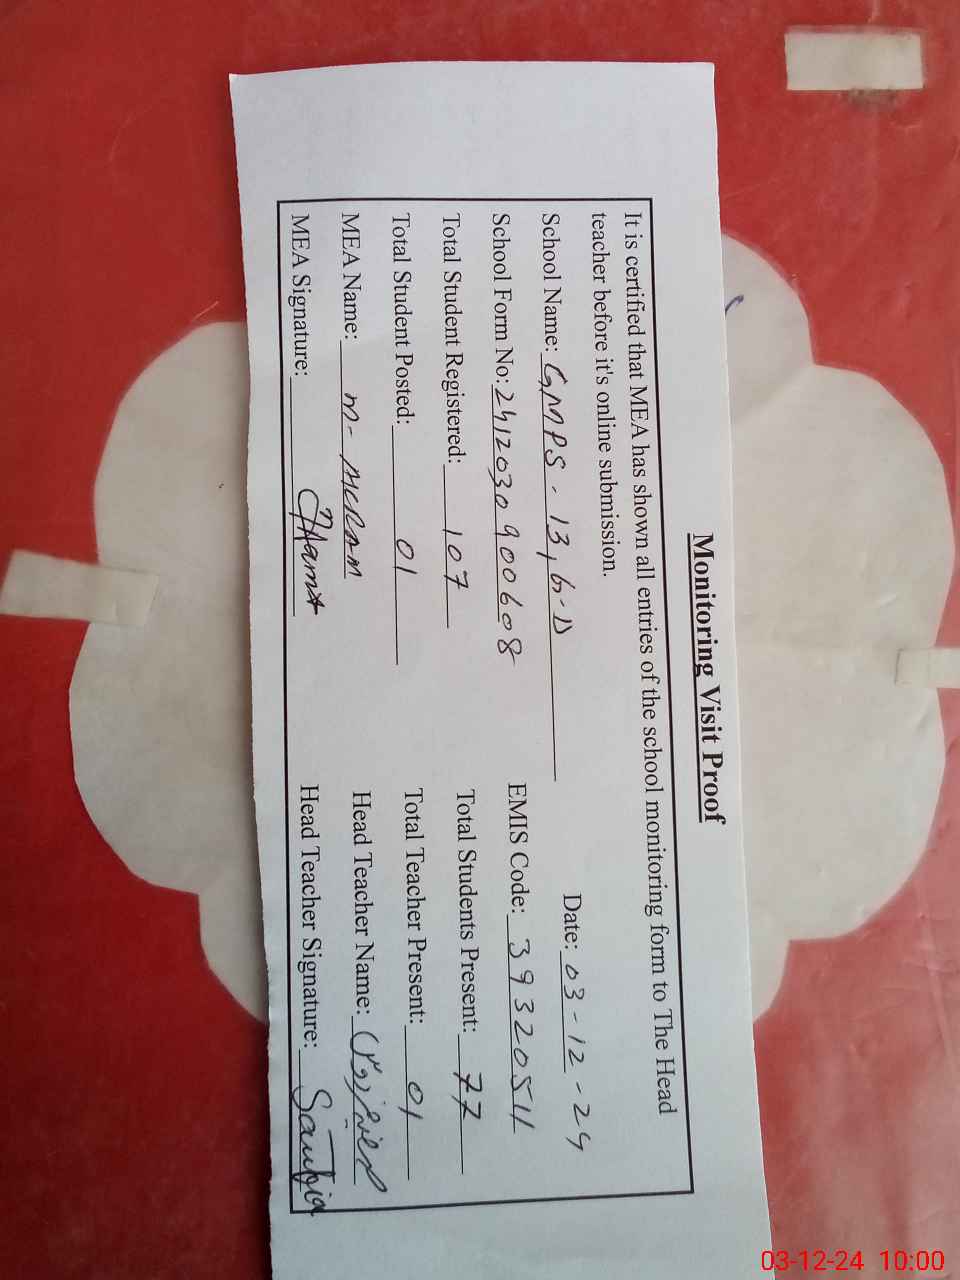 Monitoring Visit Proof
It is certified that MEA has shown all entries of the school monitoring form to The Head
teacher before it's online submission.
Date: 03-12-24
School Name: GMPS. 13, G-D
School Form No: 2412030900608 EMIS Code: 39320511
Total Student Registered: 107 Total Students Present: 77
Total Student Posted: 01 Total Teacher Present: 01
MEA Name: M- AKRAM Head Teacher Name:
MEA Signature: Head Teacher Signature:
03-12-24 10:00